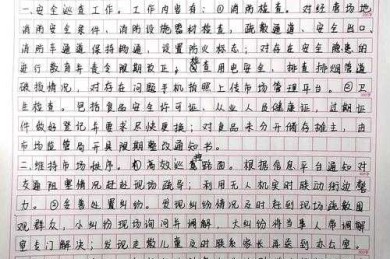 一、安全巡查工作。工作内容有：①消防检查。对经营场地
消防安全条件、消防设施器材检查，疏散通道、安全出口、
消防车通道保持畅通，设置防火标志；对存在安全隐患的
进行教育并责令限期改正。②检查用电安全，排查排烟管道
破损情况，对存在问题手机拍照上传市场管理平台。③卫
生检查。包括食品安全许可证、从业人员健康证，过期证
件做好登记并要求尽快更换；对食品未分开储存摊主，由
市场监管局开具限期整改通知书。
二、维持市场秩序。①高效巡查路面。根据信息平台通知对
交通阻塞情况赶赴现场疏导；利用无人机实时联动街边警
力。②妥善处置纠纷。发现纠纷情况及时赶到现场疏散围
观群众，小纠纷现场询问并调解，大纠纷将当事人带调解
室专门解决；发现走散儿童及时联系家长再来到办公室。